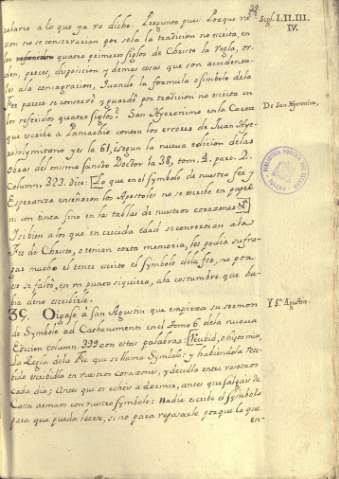 Sigl. I. II. III.
IV.
a lo que ya ro dicho. Pregunto pues: Porque ra-
zon no se conservarian por sola la tradicion no escrita en
los quatro primeros siglos de Christo la regla, or-
den, preces, disposicion y demas cosas que son acciden-
a la consagracion, quando la formula o simbolo dela
Fee parece se conservó y guardó por tradicion no escrita en
los referidos quatro siglos? San Hyeronimo en la Carta
De San Hyeronimo,
que escribe à Pamachio contra los errores de Juan Hye-
rosolymitano y es la 61, segun la nueva edicion delas
obras del mismo Doctor la 38, tom. 4. part. 2.
Column. 323. dice: Lo que en el symbolo de nuestra fee y
Esperanza enseñaron los Apostoles no se escribe en papel
ni con tinta sino en las tablas de nuestros corazones
Y si bien a los que en crecida edad se convertian ala
Fee de Christo, o tenian corta memoria, les podia sufra-
gar mucho el tener escrito el symbolo dela fee, no por
se faltó, en un punto siquiera, ala costumbre que ha-
bia de no escribirle.
39. Oigase à San Agustin que empieza su sermon
Y Sn. Agustin.
de Symbolo ad Cathecumenos en el tomo 6 dela nueva
Edicion column. 399 con estas palabras: Recibid, o hijos mios,
la Regla dela Fee que se llama Symbolo: y habiendola reci-
bido escribidla en vuestros corazones, y decidla entre vosotros
Cada dia: Antes que os echeis à dormir, antes que salgais de
Casa armaos con vuestro Symbolo: Nadie escribe el Symbolo
para que pueda leerse, sino para repasarle porque lo que
en-